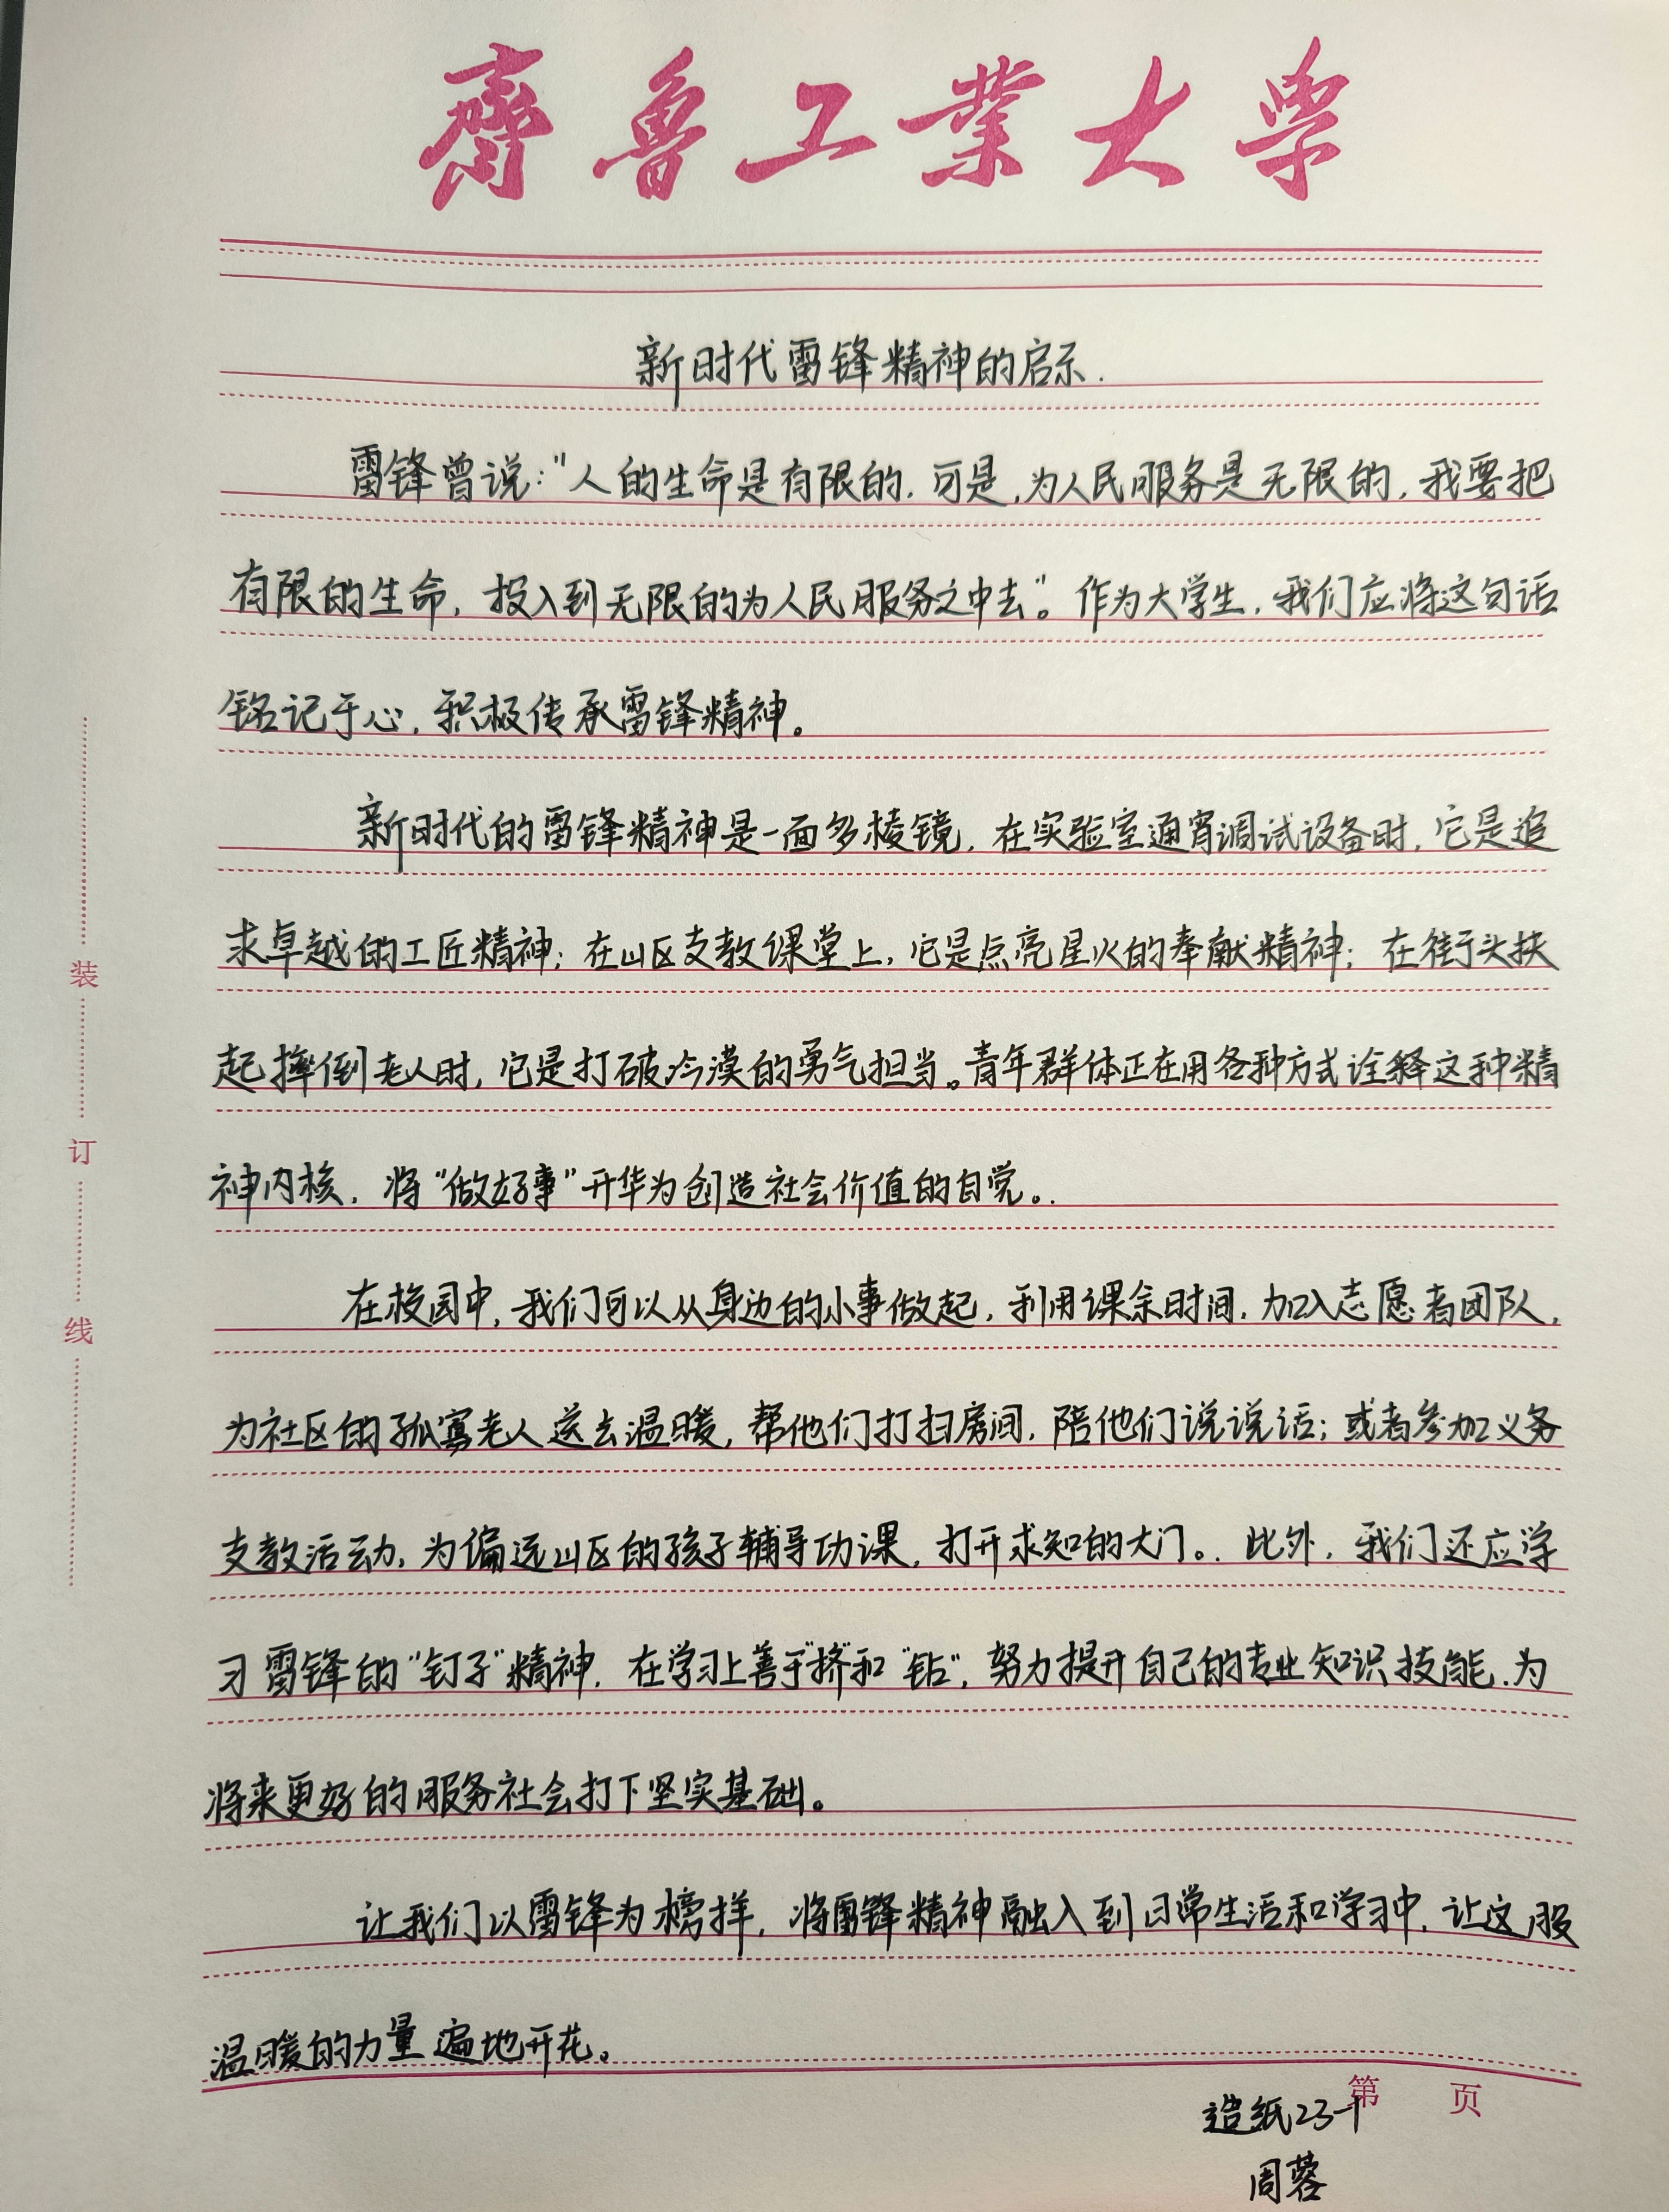 齊魯工業大学
新时代雷锋精神的启示.
雷锋曾说:"人的生命是有限的,可是,为人民服务是无限的,我要把
有限的生命,投入到无限的为人民服务之中去"。作为大学生,我们应将这句话
铭记于心,积极传承雷锋精神。
新时代的雷锋精神是一面多棱镜,在实验室通宵调试设备时,它是追
求卓越的工匠精神;在山区支教课堂上,它是点亮星火的奉献精神;在街头扶
起摔倒老人时,它是打破冷漠的勇气担当。青年群体正在用各种方式诠释这种精
神内核,将"做好事"升华为创造社会价值的自觉。.
在校园中,我们可以从身边的小事做起,利用课余时间,加入志愿者团队,
为社区的孤寡老人送去温暖,帮他们打扫房间,陪他们说说话;或者参加义务
支教活动,为偏远山区的孩子辅导功课,打开求知的大门。.此外,我们还应学
习雷锋的"钉子"精神,在学习上善于"挤"和"钻",努力提升自己的专业知识技能,为
将来更好的服务社会打下坚实基础。
让我们以雷锋为榜样,将雷锋精神融入到日常生活和学习中,让这股
温暖的力量遍地开花。
第 页
造纸23-1
周蓉
装
订
线